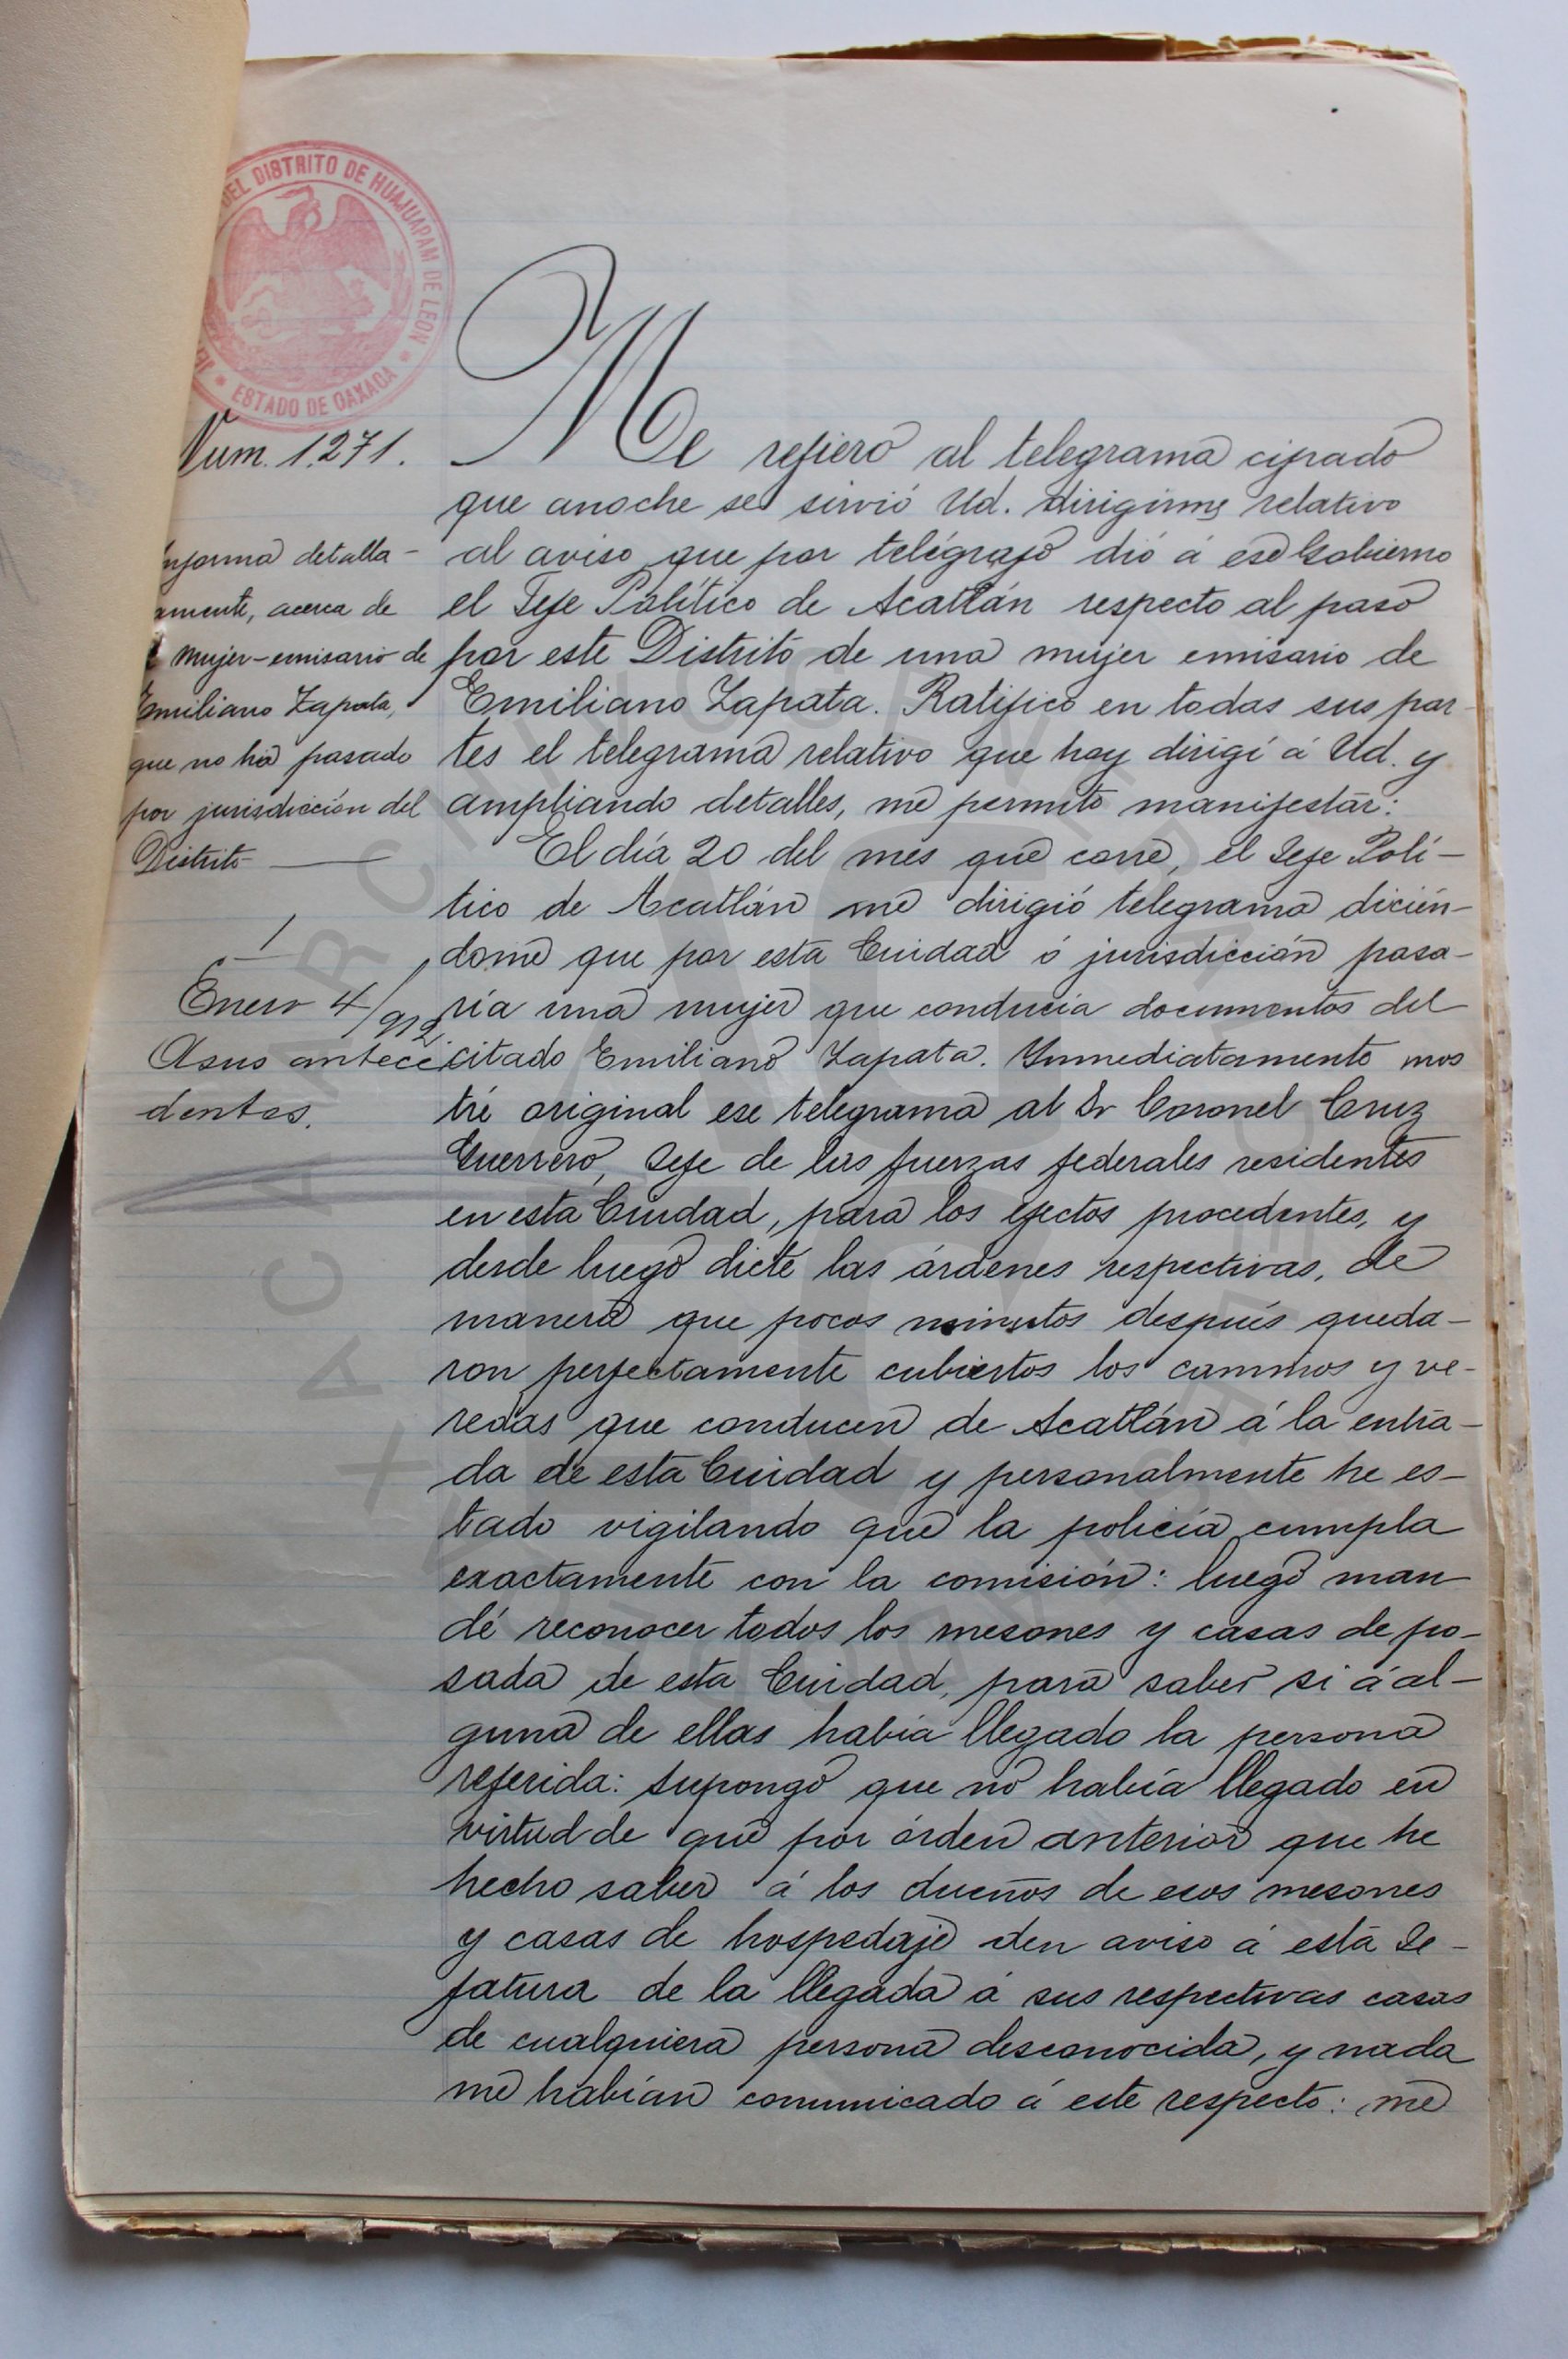 DEL DISTRITO DE HUAJUAPAM DE LEON
* ESTADO DE OAXACA *
Num. 1,271.
nforma detalla-
amente, acerca de
mujer-emisario de
Emiliano Zapata,
que no ha pasado
por jurisdicción del
Distrito
1
Enero 4/912
A sus antece
dentes.
Me refiero al telegrama cifrado
que anoche se sirvió Ud. dirigirme relativo
al aviso que por telégrafo dió á ese Gobierno
el Jefe Político de Acatlán respecto al paso
por este Distrito de una mujer emisario de
Emiliano Zapata. Ratifico en todas sus par-
tes el telegrama relativo que hoy dirigí á Ud. y
ampliando detalles, me permito manifestar:
El día 20 del mes que corre, el Jefe Polí-
tico de Acatlán me dirigió telegrama dicién-
dome que por esta Ciudad ó jurisdicción pasa-
ría una mujer que conducía documentos del
citado Emiliano Zapata. Inmediatamente mos
tré original ese telegrama al Sr Coronel Cruz
Guerrero, Jefe de las fuerzas federales residentes
en esta Ciudad, para los efectos procedentes, y
desde luego dicté las órdenes respectivas, de
manera que pocos minutos después queda-
ron perfectamente cubiertos los caminos y ve-
redas que conducen de Acatlán á la entra-
da de esta Ciudad y personalmente he es-
tado vigilando que la policía cumpla
exactamente con la comisión: luego man
dé reconocer todos los mesones y casas de po-
sada de esta Ciudad, para saber si á al-
guna de ellas había llegado la persona
referida: supongo que no había llegado en
virtud de que por órden anterior que he
hecho saber á los dueños de esos mesones
y casas de hospedaje den aviso á esta Je-
fatura de la llegada á sus respectivas casas
de cualquiera persona desconocida, y nada
me habían comunicado á este respecto: me